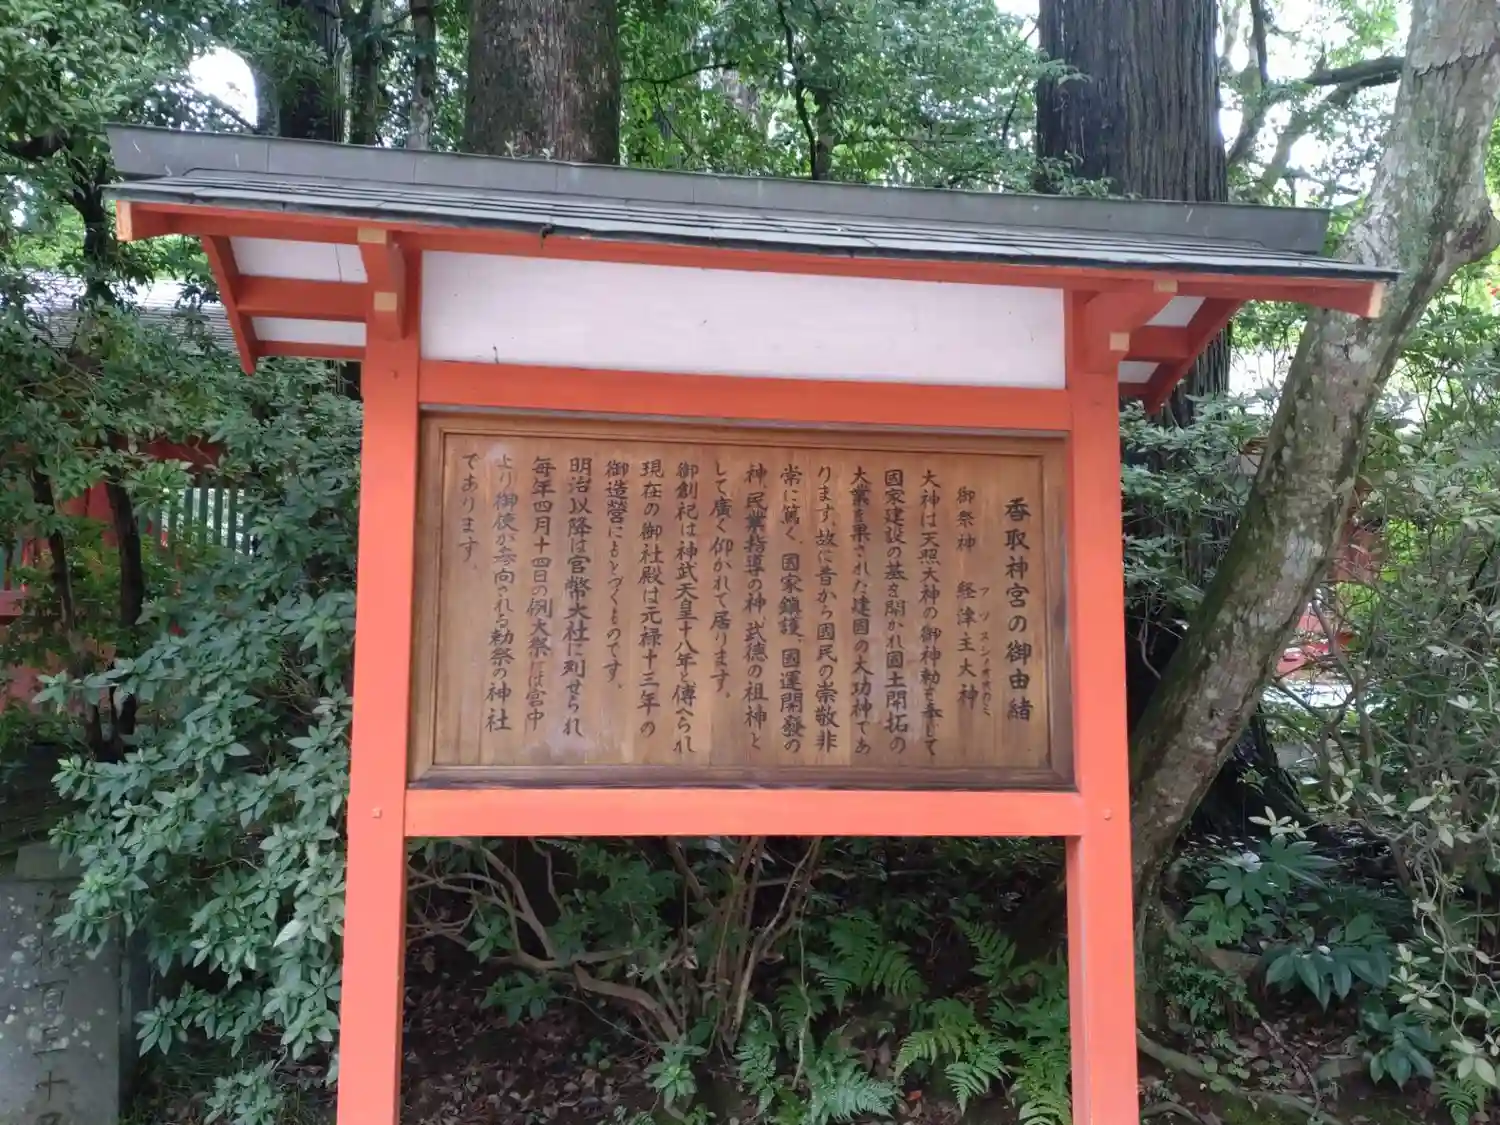 香取神宮の御由緒
御祭神　経津主大神
フツヌシノオオカミ
大神は天照大神の御神勅を奉じて
國家建設の基を開かれ國土開拓の
大業を果された建國の大功神であ
ります,故に昔から國民の崇敬非
常に篤く、國家鎮護、國運開發の
神,民業指導の神,武徳の祖神と
して廣く仰がれて居ります。
御創祀は神武天皇十八年と傳へられ
現在の御社殿は元禄十三年の
御造營にもとづくものです。
明治以降は官幣大社に列せられ
毎年四月十四日の例大祭には宮中
より御使が参向される勅祭の神社
であります。